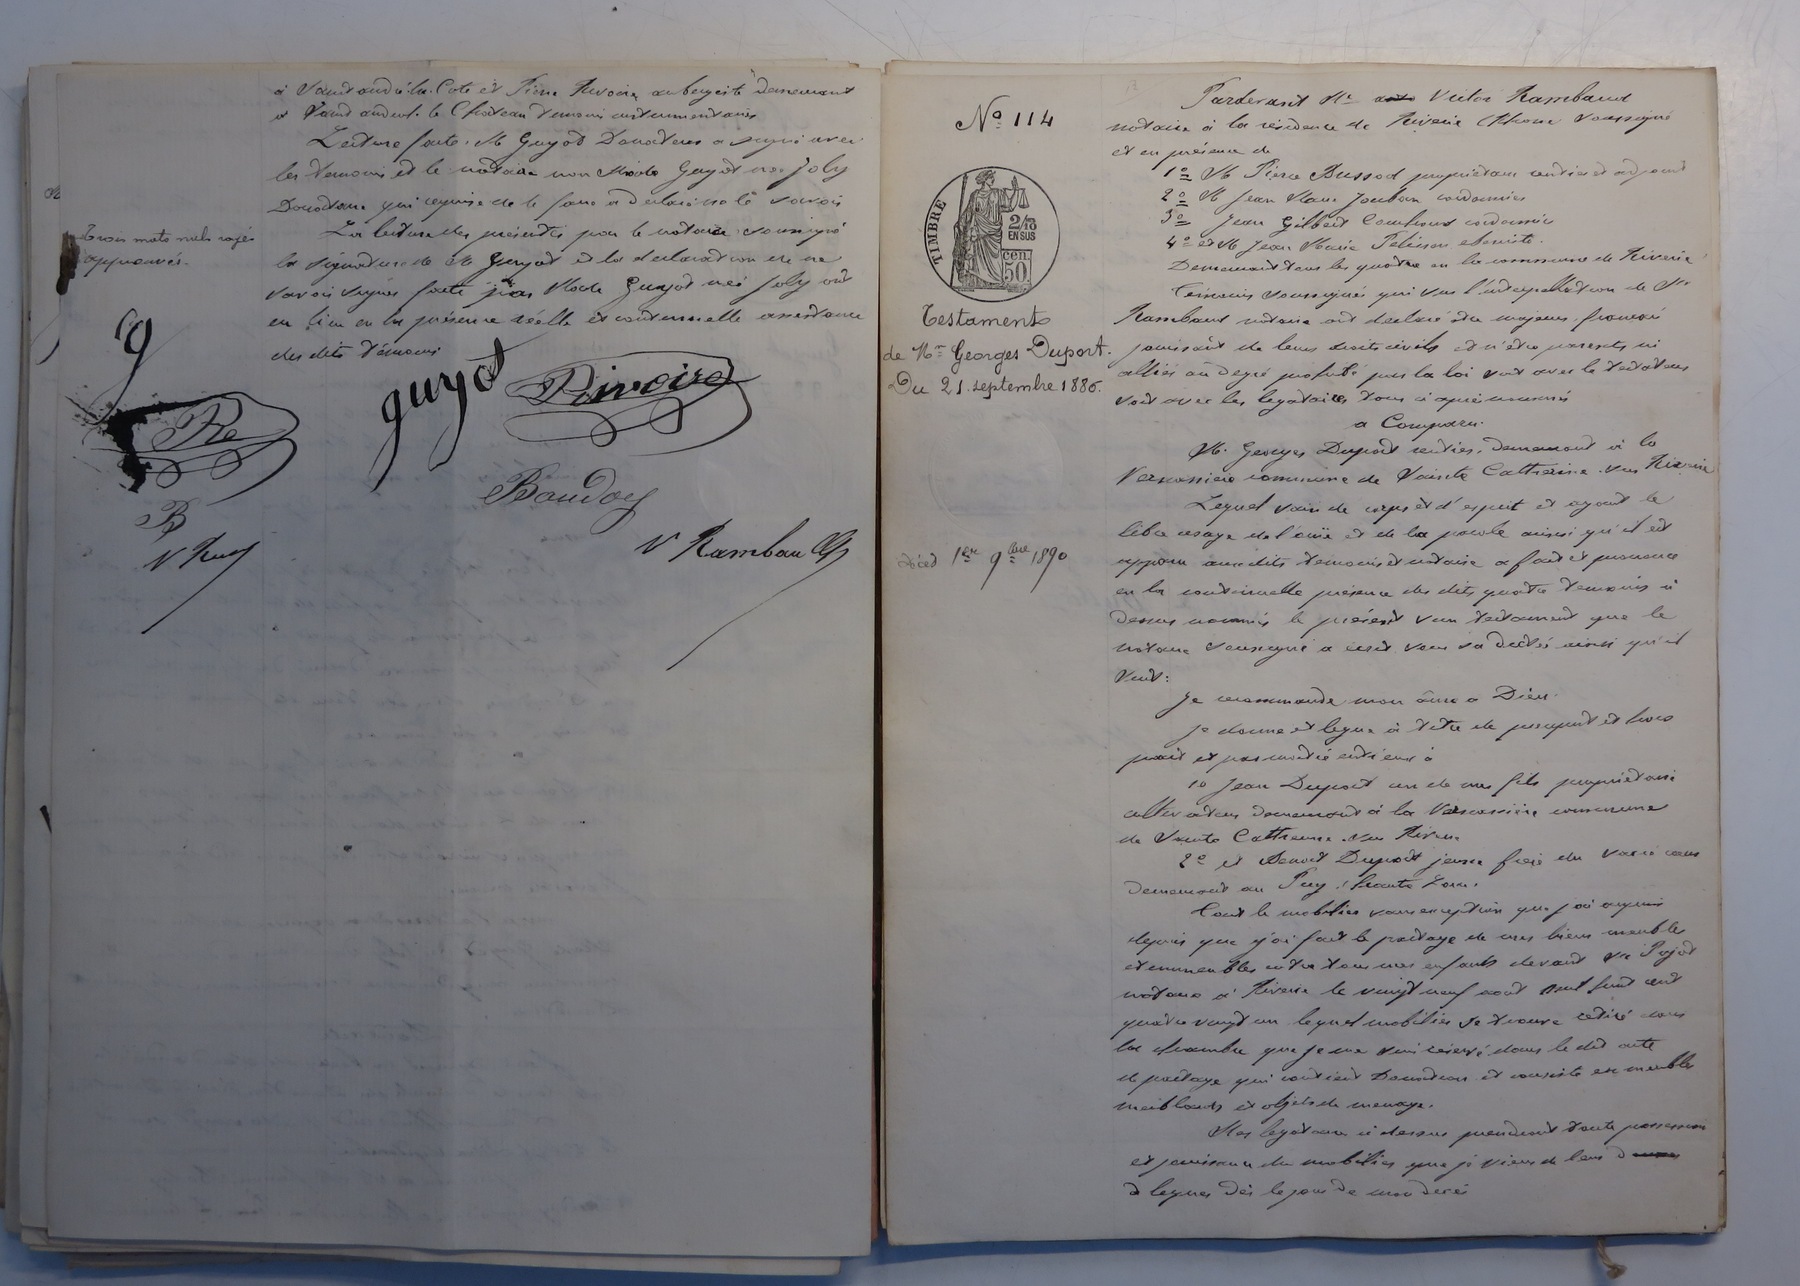 à Saint andré la Cote et Pierre Rivoire aubergiste demeurant
à Saint andré le Chateau témoins instrumentaires
Lecture faite, M Guyot Donateur a signé avec
les témoins et le notaire non Made Guyot née Joly
Donatrice qui requise de le faire a déclaré ne le savoir
La lecture des présentes par le notaire soussigné
la signature de M Guyot et la declaration de ne
savoir signer faite par Made Guyot née Joly ont
eu lieu en la présence réelle et continuelle assistance
des dits témoins
Trois mots nuls rayés
approuvés.
G
guyot Rivoire
Re
Boudoy
B
V Rambaud
N° 114
TIMBRE
2/10
EN SUS
50 cen
Testament
de Mr Georges Dupont.
Du 21 septembre 1886.
Décd 1er 9bre 1890
Pardevant Me Victor Rambaud
notaire à la résidence de Riverie (Rhone) soussigné
et en présence de
1° M Pierre Bussod propriétaire rentier et adjoint
2° M Jean Marie Jouban cordonnier
3° Jean Gilbert cordonnier
4° et M Jean Marie Pelisson ebeniste.
Demeurant tous les quatre en la commune de Riverie
Témoins soussignés qui sur l'interpellation de Me
Rambaud notaire ont déclaré être majeurs, français
jouissant de leurs droits civils et n'être parents ni
alliés au degré prohibé par la loi soit avec le testateur
soit avec les legataires tous ci après nommés
a Comparu.
M. Georges Dupont rentier, demeurant à la
commune de Sainte Catherine sur Riverie
Lequel sain de corps et d'esprit et ayant le
libre usage de l'ouïe et de la parole ainsi qu'il est
apparu aux dits temoins et notaire a fait et prononcé
en la continuelle présence des dits quatre temoins ci
dessus nommés le présent son testament que le
notaire soussigné a écrit sous sa dictée ainsi qu'il
suit:
Je recommande mon âme a Dieu.
Je donne et legue à titre de preciput et hors
part et par moitié entr'eux à
1° Jean Dupont un de mes fils propriétaire
cultivateur demeurant à la commune
de Sainte Catherine sur Riverie
2° et Benoit Dupont jeune frere du
demeurant au Puy (Haute Loire.
Tout le mobilier sans exception que j'ai acquis
depuis que j'ai fait le partage de mes biens meubles
et immeubles entre tous mes enfants devant Me
notaire à Riverie le vingt neuf août mil huit cent
quatre vingt un lequel mobilier se trouve dans
la chambre que je me suis réservé dans le dit acte
de partage qui contient Donation et consiste en meubles
meublants et objets de menage.
Mes legataires ci dessus prendront toute possession
et jouissance du mobilier que je viens de leur
leguer dès le jour de mon decès